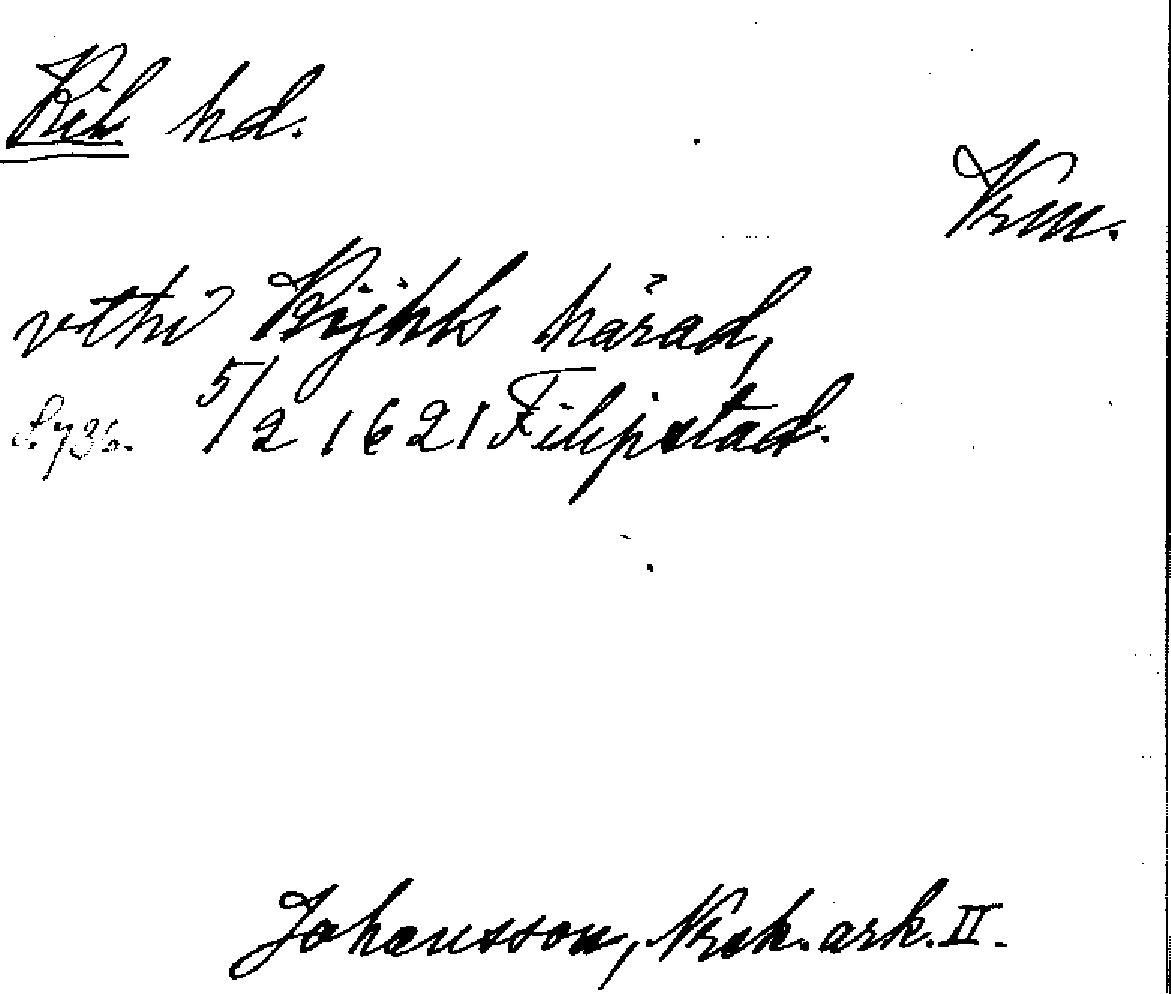 Kils hd.
Vrm.
vthi Kijhls härad,
S. 736. 5/2 1621 Filipstad.
Johansson, Nrsk. ark. II.